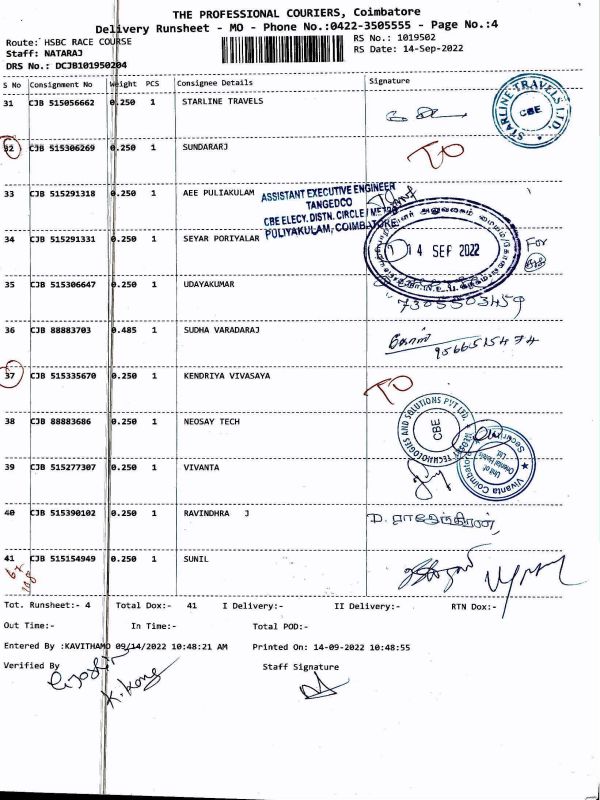 THE PROFESSIONAL COURIERS, Coimbatore
Delivery Runsheet - MO - Phone No.:0422-3505555 - Page No.:4
Route: HSBC RACE COURSE
RS No.: 1019502
Staff: NATARAJ
RS Date: 14-Sep-2022
DRS No.: DCJB101950204
S No Consignment No Weight PCS Consignee Details Signature
31 CJB 515056662 0.250 1 STARLINE TRAVELS
STARLINE TRAVELS LTD
CBE
32 CJB 515306269 0.250 1 SUNDARARJ
TO
33 CJB 515291318 0.250 1 AEE PULIAKULAM
ASSISTANT EXECUTIVE ENGINEER
TANGEDCO
CBE ELECY. DISTN. CIRCLE / METRO
PULIYAKULAM, COIMBATORE
34 CJB 515291331 0.250 1 SEYAR PORIYALAR
14 SEP 2022
For
35 CJB 515306647 0.250 1 UDAYAKUMAR
7305503459
36 CJB 88883703 0.485 1 SUDHA VARADARAJ
9566515474
37 CJB 515335670 0.250 1 KENDRIYA VIVASAYA
TO
38 CJB 88883686 0.250 1 NEOSAY TECH
CBE
39 CJB 515277307 0.250 1 VIVANTA
Vivanta Coimbatore
Unit of
Oriental Hotels
Ltd.
Security
40 CJB 515390102 0.250 1 RAVINDHRA J
41 CJB 515154949 0.250 1 SUNIL
Tot. Runsheet:- 4 Total Dox:- 41 I Delivery:- II Delivery:- RTN Dox:-
Out Time:- In Time:- Total POD:-
Entered By :KAVITHAMO 09/14/2022 10:48:21 AM Printed On: 14-09-2022 10:48:55
Verified By Staff Signature